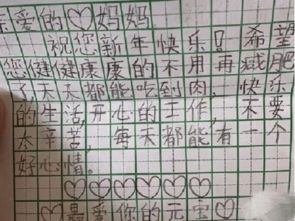 亲爱的♡妈妈
祝您新年快乐！希望
您健健康康的不用再减肥
了天天都能吃到肉，快乐
的生活开心的工作，不要
太辛苦，每天都能有一个
好心情。
♡♡♡♡♡♡♡
♡最爱你的元宝♡